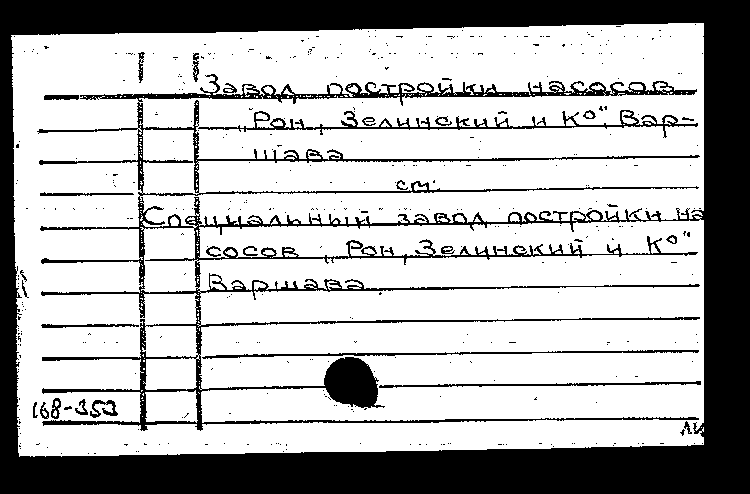 Завод постройки насосов
„Рон, Зелинский и К°", Вар-
шава
см:
Специальный завод постройки на
сосов „Рон, Зелинский и К°"
Варшава
168-353
ЛИ